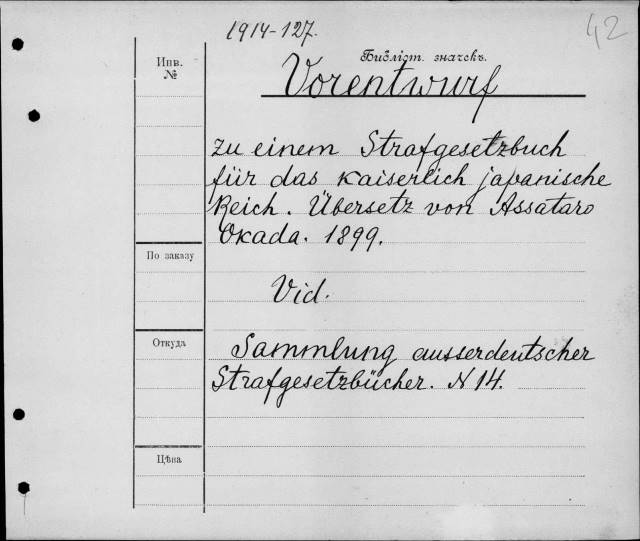 1914-127.
42
Инв.
№
Библіот. значекъ.
Vorentwurf
zu einem Strafgesetzbuch
für das kaiserlich japanische
Reich. Übersetz von Assataro
Okada. 1899.
По заказу
Vid.
Откуда
Sammlung ausserdeutscher
Strafgesetzbücher. N 14.
Цѣна